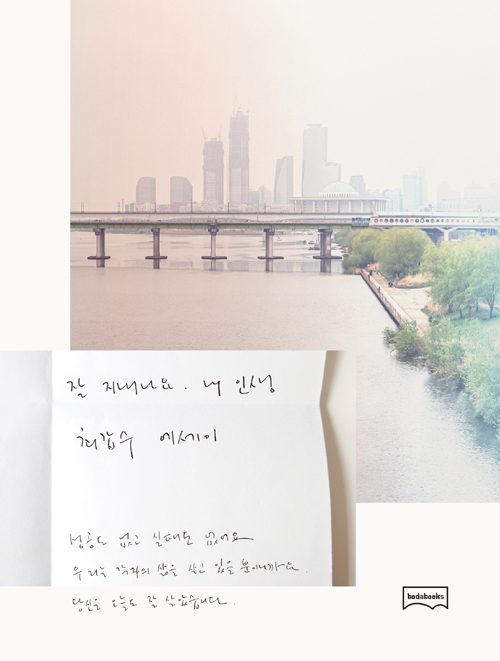 잘 지내나요. 내 인생
최갑수 에세이
성공도 없고 실패도 없어요
우리는 각자의 삶을 살고 있을 뿐이니까요.
당신은 오늘도 잘 살았습니다.
bodabooks